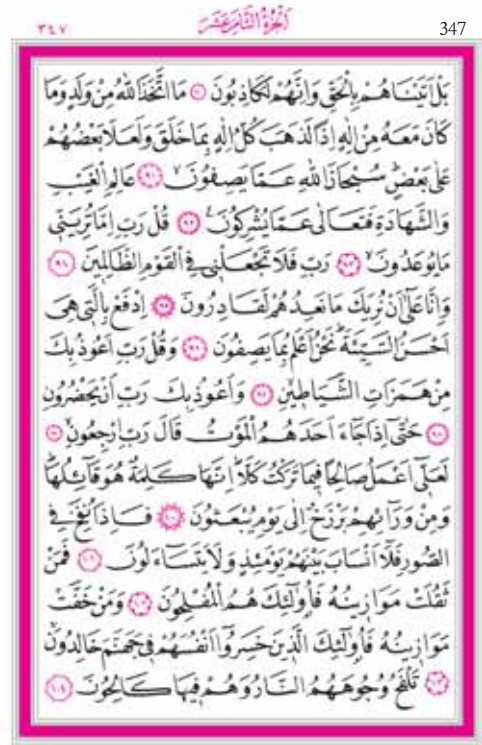 ٣٤٧ اَلْجُزْءُ الثَّامِنُ عَشَرَ 347
بَلْ اَتَيْنَاهُمْ بِالْحَقِّ وَاِنَّهُمْ لَكَاذِبُونَ ﴿٩٠﴾ مَا اتَّخَذَ اللّٰهُ مِنْ وَلَدٍ وَمَا
كَانَ مَعَهُ مِنْ اِلٰهٍ اِذًا لَذَهَبَ كُلُّ اِلٰهٍ بِمَا خَلَقَ وَلَعَلَا بَعْضُهُمْ
عَلٰى بَعْضٍ سُبْحَانَ اللّٰهِ عَمَّا يَصِفُونَ ﴿٩١﴾ عَالِمِ الْغَيْبِ
وَالشَّهَادَةِ فَتَعَالٰى عَمَّا يُشْرِكُونَ ﴿٩٢﴾ قُلْ رَبِّ اِمَّا تُرِيَنّ۪ي
مَا يُوعَدُونَ ﴿٩٣﴾ رَبِّ فَلَا تَجْعَلْن۪ي فِي الْقَوْمِ الظَّالِم۪ينَ ﴿٩٤﴾
وَاِنَّا عَلٰٓى اَنْ نُرِيَكَ مَا نَعِدُهُمْ لَقَادِرُونَ ﴿٩٥﴾ اِدْفَعْ بِالَّت۪ي هِيَ
اَحْسَنُ السَّيِّئَةَ نَحْنُ اَعْلَمُ بِمَا يَصِفُونَ ﴿٩٦﴾ وَقُلْ رَبِّ اَعُوذُ بِكَ
مِنْ هَمَزَاتِ الشَّيَاط۪ينِ ﴿٩٧﴾ وَاَعُوذُ بِكَ رَبِّ اَنْ يَحْضُرُونِ
﴿٩٨﴾ حَتّٰٓى اِذَا جَٓاءَ اَحَدَهُمُ الْمَوْتُ قَالَ رَبِّ ارْجِعُونِ ﴿٩٩﴾
لَعَلّ۪ٓي اَعْمَلُ صَالِحًا ف۪يمَا تَرَكْتُ كَلَّا اِنَّهَا كَلِمَةٌ هُوَ قَٓائِلُهَا
وَمِنْ وَرَٓائِهِمْ بَرْزَخٌ اِلٰى يَوْمِ يُبْعَثُونَ ﴿١٠٠﴾ فَاِذَا نُفِخَ فِي
الصُّورِ فَلَٓا اَنْسَابَ بَيْنَهُمْ يَوْمَئِذٍ وَلَا يَتَسَٓاءَلُونَ ﴿١٠١﴾ فَمَنْ
ثَقُلَتْ مَوَاز۪ينُهُ فَاُو۬لٰٓئِكَ هُمُ الْمُفْلِحُونَ ﴿١٠٢﴾ وَمَنْ خَفَّتْ
مَوَاز۪ينُهُ فَاُو۬لٰٓئِكَ الَّذ۪ينَ خَسِرُٓوا اَنْفُسَهُمْ ف۪ي جَهَنَّمَ خَالِدُونَ
﴿١٠٣﴾ تَلْفَحُ وُجُوهَهُمُ النَّارُ وَهُمْ ف۪يهَا كَالِحُونَ ﴿١٠٤﴾